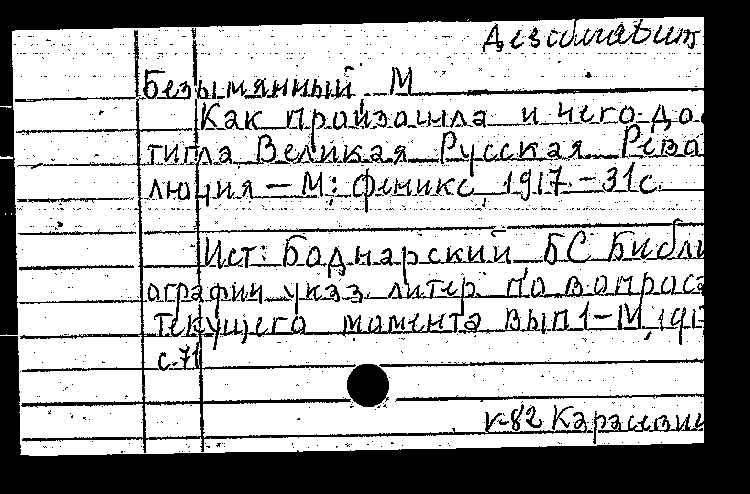 Безымянный М
Как произошла и чего до
тигла Великая Русская Рево
люция – М: Феникс, 1917. – 31 с.
Ист: Боднарский БС Библи
ографич указ. литер по вопроса
текущего момента вып 1 – М, 191
с. 71
к-82